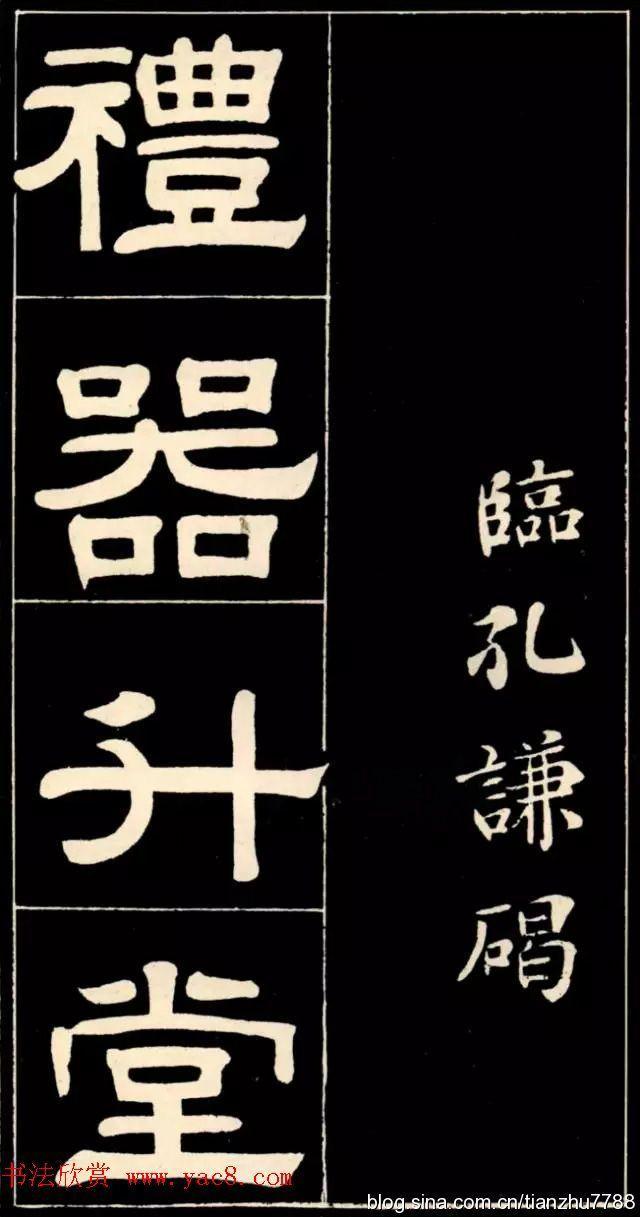 臨孔謙碣
禮器升堂
书法欣赏 www.yac8.com
blog.sina.com.cn/tianzhu7788